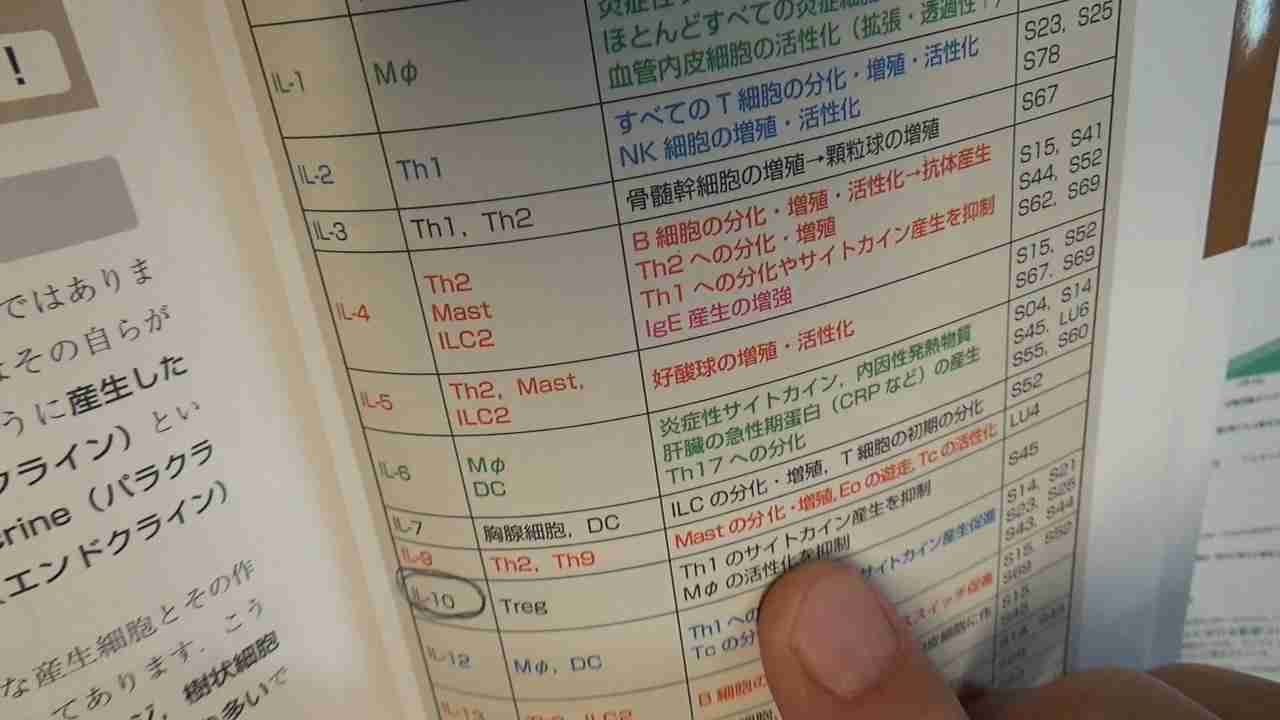 ！
ではありま
はその自らが
うに産生した
クライン）とい
crine（パラクラ
エンドクライン）
な産生細胞とその作
てあります．こう
樹状細胞
多いで
IL-1
Mφ
ほとんどすべての炎症細胞
血管内皮細胞の活性化（拡張・透過性↑）
S23, S25
S78
IL-2
Th1
すべてのT細胞の分化・増殖・活性化
NK細胞の増殖・活性化
S67
IL-3
Th1, Th2
骨髄幹細胞の増殖→顆粒球の増殖
IL-4
Th2
Mast
ILC2
B細胞の分化・増殖・活性化→抗体産生
Th2への分化・増殖
Th1への分化やサイトカイン産生を抑制
IgE産生の増強
S15, S41
S44, S52
S62, S69
IL-5
Th2, Mast,
ILC2
好酸球の増殖・活性化
S15, S52
S67, S69
IL-6
Mφ
DC
炎症性サイトカイン，内因性発熱物質
肝臓の急性期蛋白（CRPなど）の産生
Th17への分化
S04, S14
S45, LU6
S55, S60
IL-7
胸腺細胞, DC
ILCの分化・増殖，T細胞の初期の分化
S52
IL-9
Th2, Th9
Mastの分化・増殖, Eoの遊走, Tcの活性化
LU4
IL-10
Treg
Th1のサイトカイン産生を抑制
Mφの活性化を抑制
S45
IL-12
Mφ, DC
Th1への
サイトカイン産生促進
Tcの分
S14, S21
S43, S44
B細胞の
スイッチ促進
S15, S52
S69